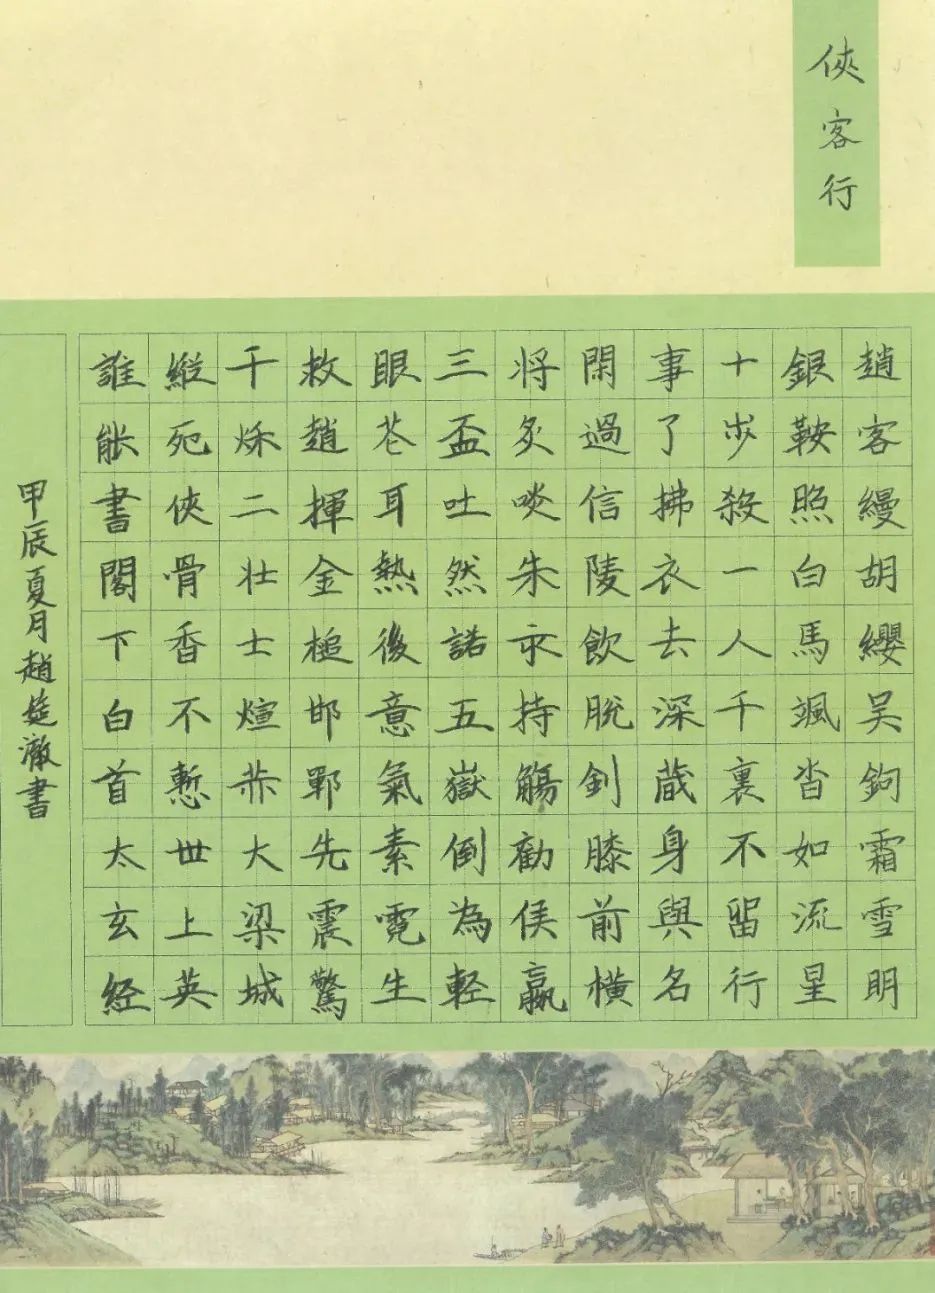 俠客行
趙客縵胡纓吳鉤霜雪明
銀鞍照白馬颯沓如流星
十步殺一人千裏不留行
事了拂衣去深藏身與名
閑過信陵飲脫劍膝前橫
將炙啖朱亥持觴勸侯嬴
三盃吐然諾五嶽倒為輕
眼花耳熱後意氣素霓生
救趙揮金槌邯鄲先震驚
千秋二壯士煊赫大梁城
縱死俠骨香不慙世上英
誰能書閣下白首太玄經
甲辰夏月趙澈書